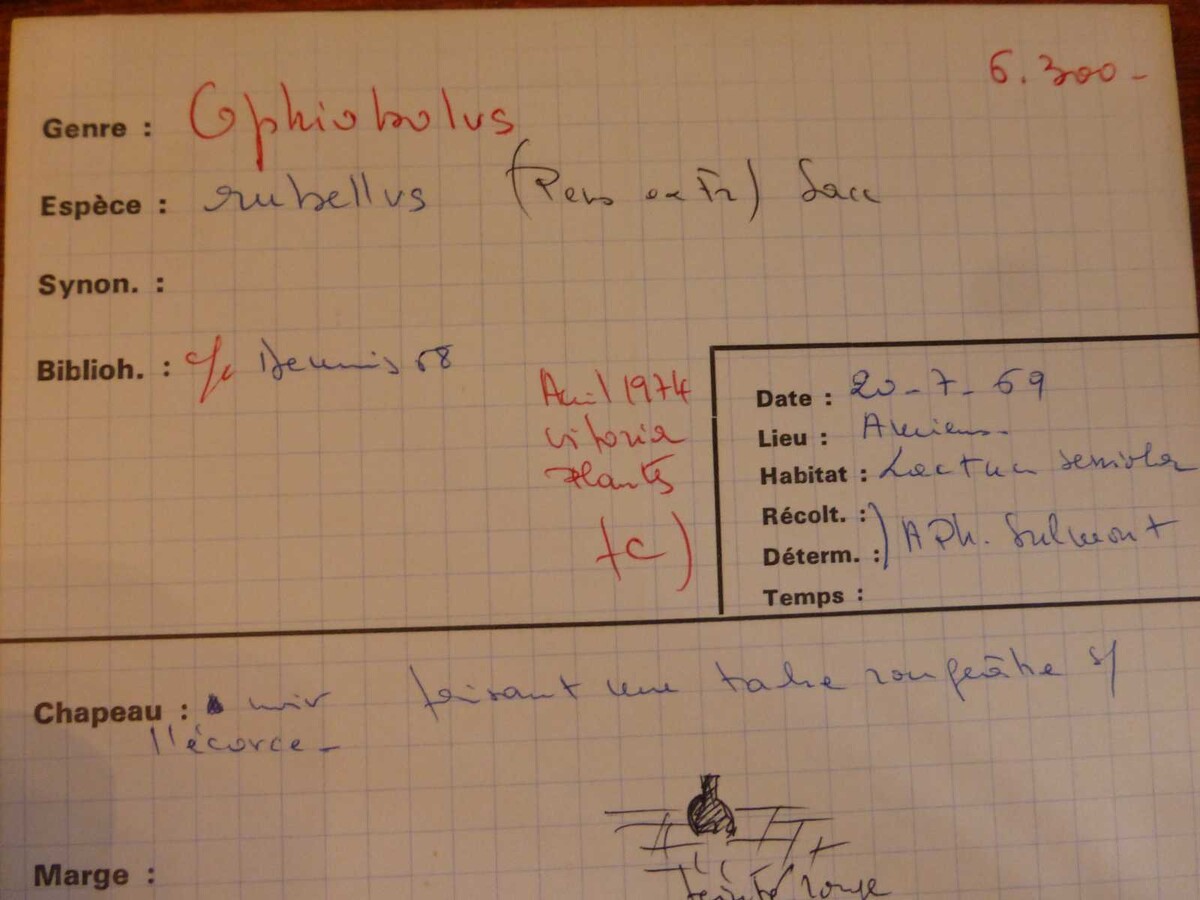 6.300-
Genre : Ophiobolus
Espèce : rubellus (Pers ex Fr) Sacc
Synon. :
Biblioh. : c/c Dennis 68
Avril 1974
vitoria
Plants
fc)
Date : 20-7-69
Lieu : Amiens.
Habitat : Lactuca
Récolt. :
Déterm. : A Ph. Sulmont
Temps :
Chapeau : noir faisant une tache rougeâtre s/
l'écorce-
Marge :
teinté rouge